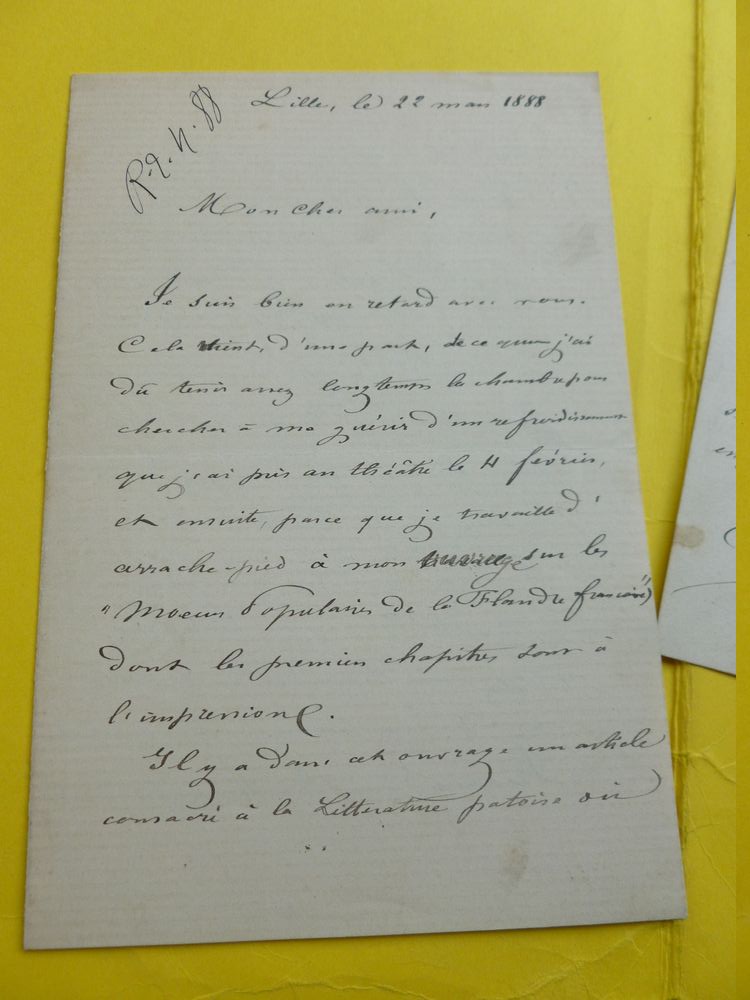 R. 2. 4. 88
Lille, le 22 mars 1888
Mon cher ami,
Je suis bien en retard avec vous.
Cela vient, d'une part, de ce que j'ai
dû tenir assez longtemps la chambre pour
chercher à me guérir d'un refroidissement
que j'ai pris au théâtre le 4 février,
et ensuite, parce que je travaille d'
arrache-pied à mon ouvrage sur les
"Moeurs Populaires de la Flandre française"
dont les premiers chapitres sont à
l'impression.
Il y a dans cet ouvrage un article
consacré à la Littérature patoise où